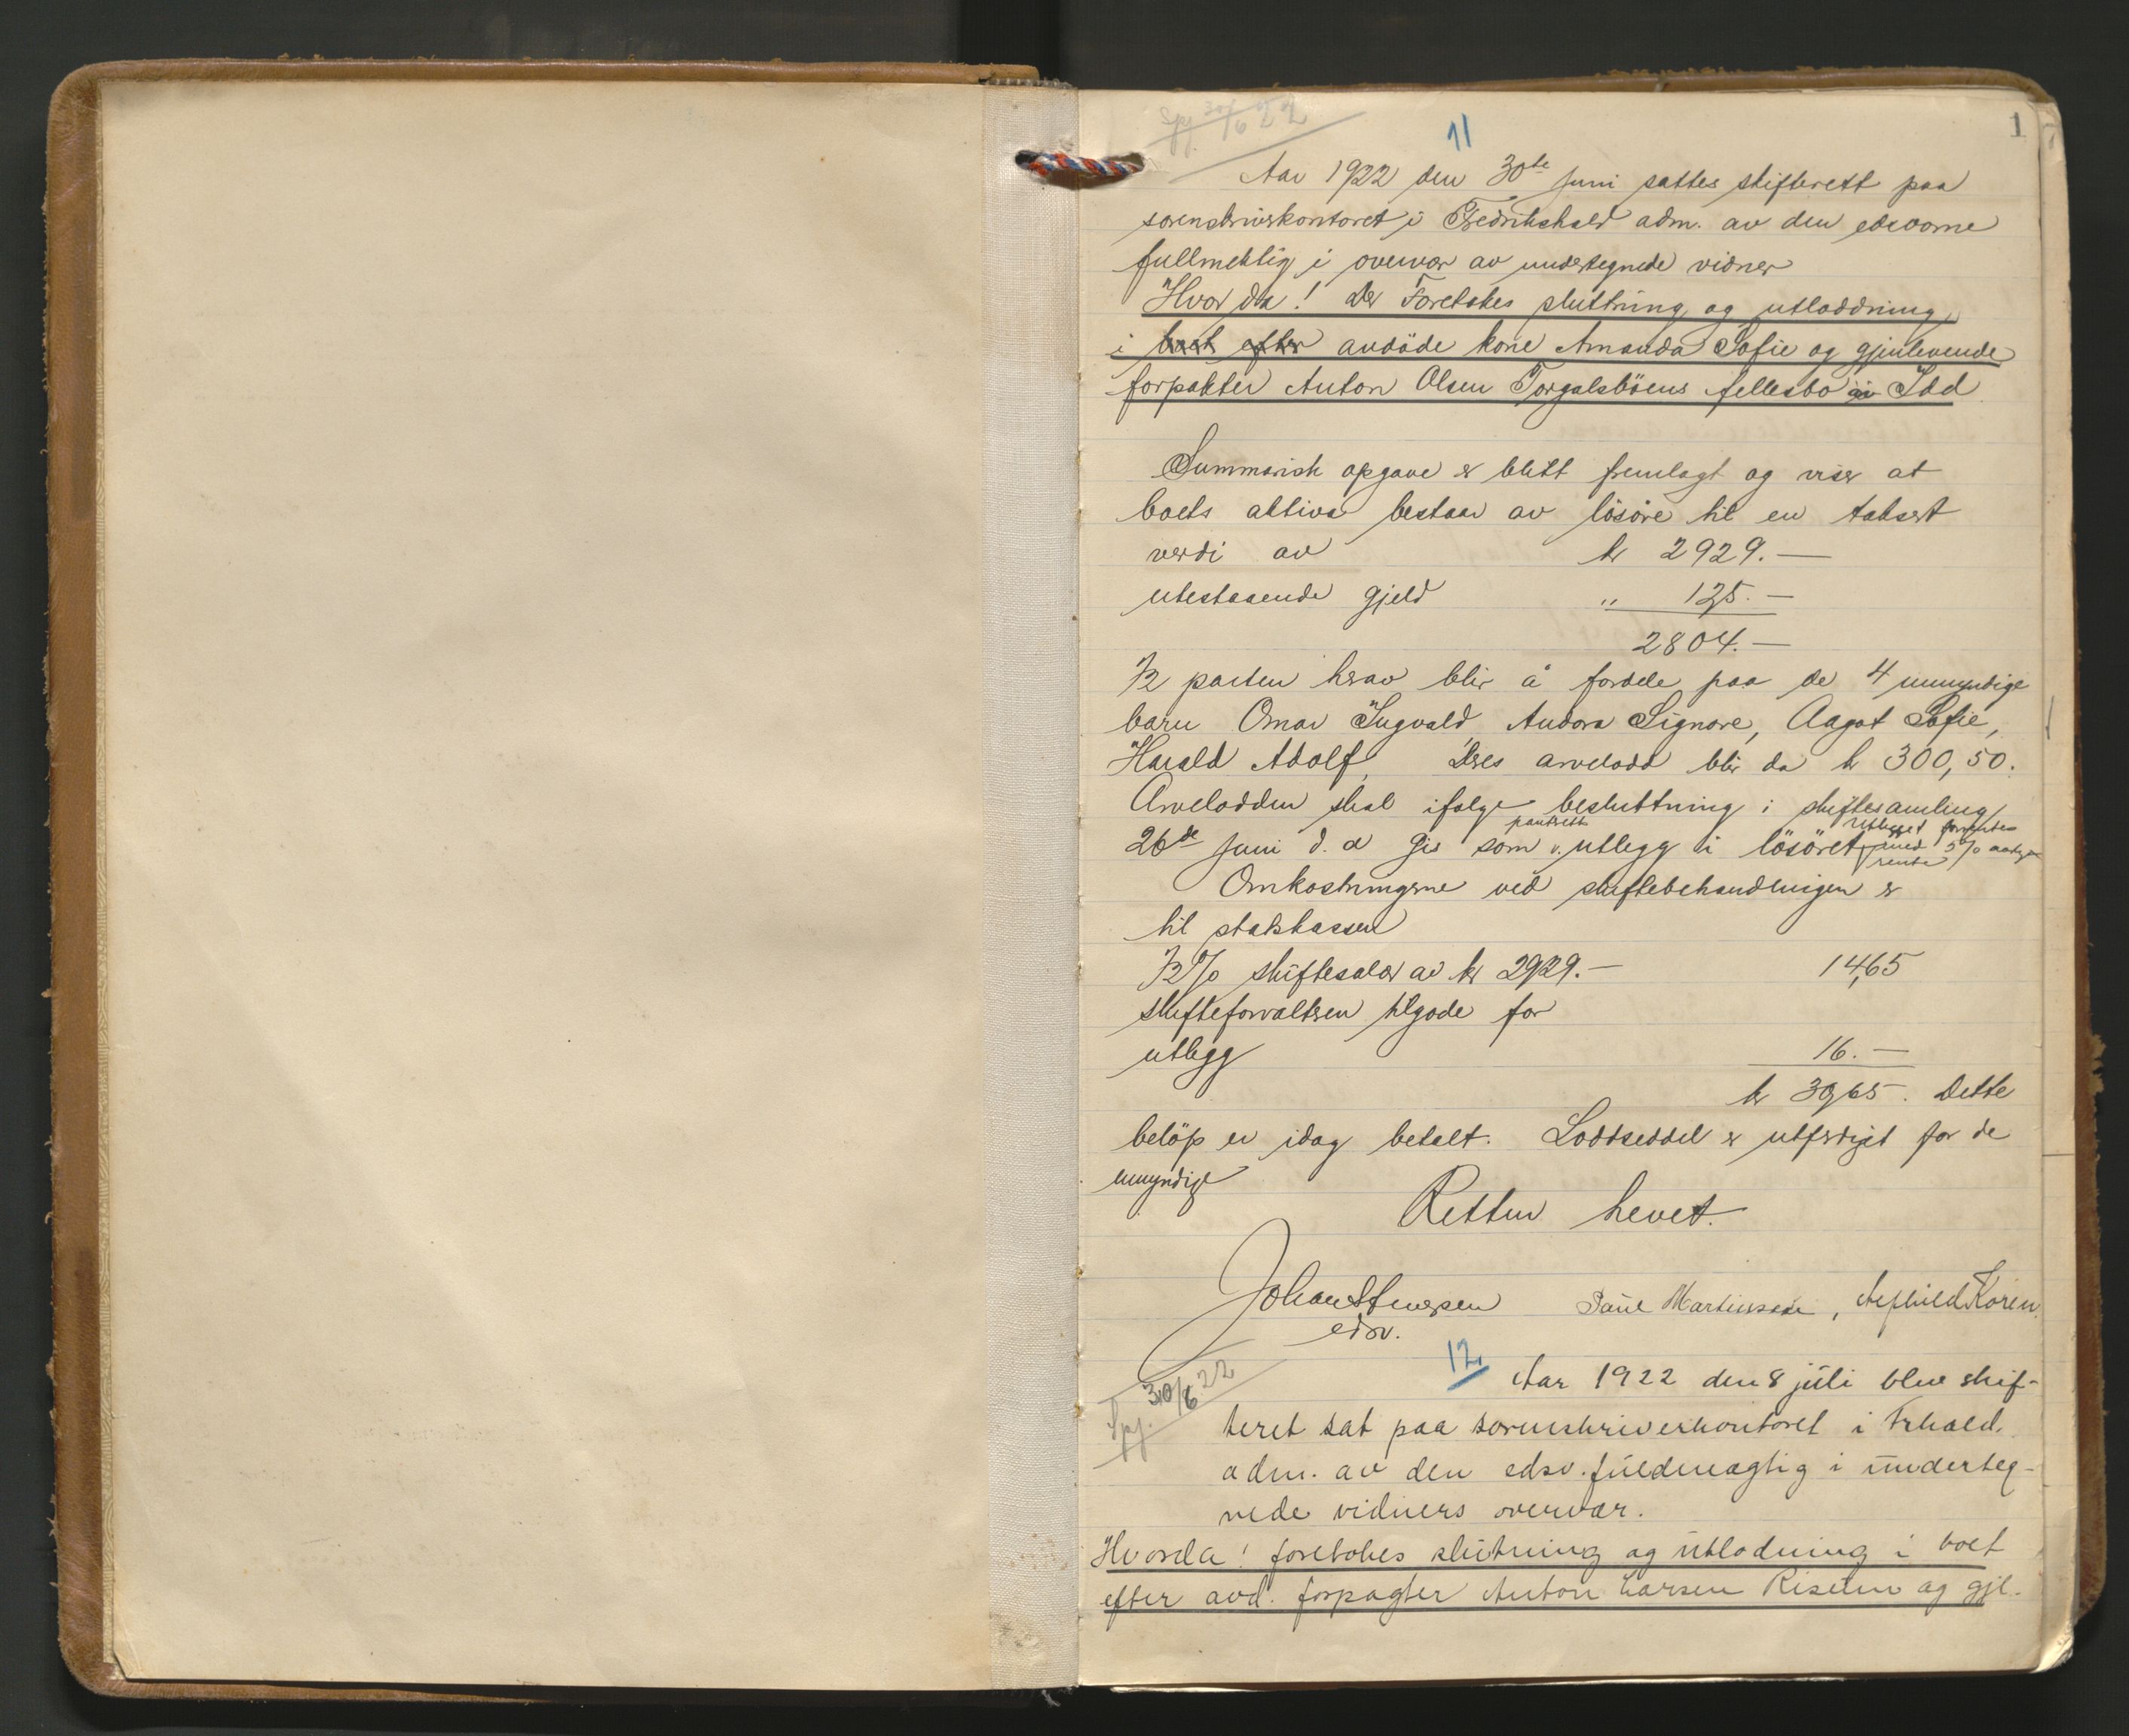 1
Spj. 30/6 22
11
Aar 1922 den 30te Juni sattes skifterett paa
sorenskriverkontoret i Fredrikshald adm. av den edsvorne
fullmektig i overvær av undertegnede vidner
Hvor da! Der Foretokes sluttning og utloddning
i boet efter avdöde kone Amanda Sofie og gjenlevende
forpakter Anton Olsen Torgalsböens fellesbo av Idd
Summarisk opgave er blitt fremlagt og viser at
boets aktiva bestaar av lösöre til en taksert
verdi av kr 2929.—
utestaaende gjeld " 125.—
2804.—
1/2 parten herav blir å fordele paa de 4 umyndige
barn Omar Ingvald, Andora Signore, Aagot Sofie,
Harald Adolf, Deres arvelodd blir da kr 300,50.
Arvelodden skal ifølge besluttning i skiftesamling
pantrett utlegget forrentes
26de Juni d. a gis som v. utlegg i lösöret med 5 % aarlig
rente
Omkostningerne ved skiftebehandlingen er
til statskassen
1/2 % skiftesalær av kr 2929.— 14,65
skifteforvalteren tilgode for
utlegg 16.—
kr 30,65. Dette
belöp er idag betalt. Loddseddel er utferdiget for de
umyndige
Retten hevet.
Johan Stenersen Paul Martinsen, Koren
edsv.
Spj. 30/6 22
12
Aar 1922 den 8 juli blev skif-
teret sat paa sorenskriverkontoret i Frhald.
adm. av den edsv. fuldmægtig i underteg-
nede vidners overvær.
Hvorda! foretokes slutning og utlodning i boet
efter avd. forpagter Anton Larsen Risetun og gjl.